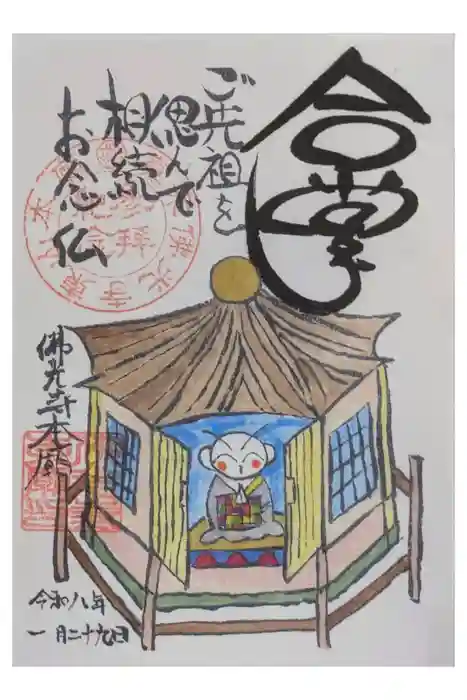 合掌
ご先祖を
偲んで
相続
お念仏
佛光寺本廟
令和八年
一月二十九日